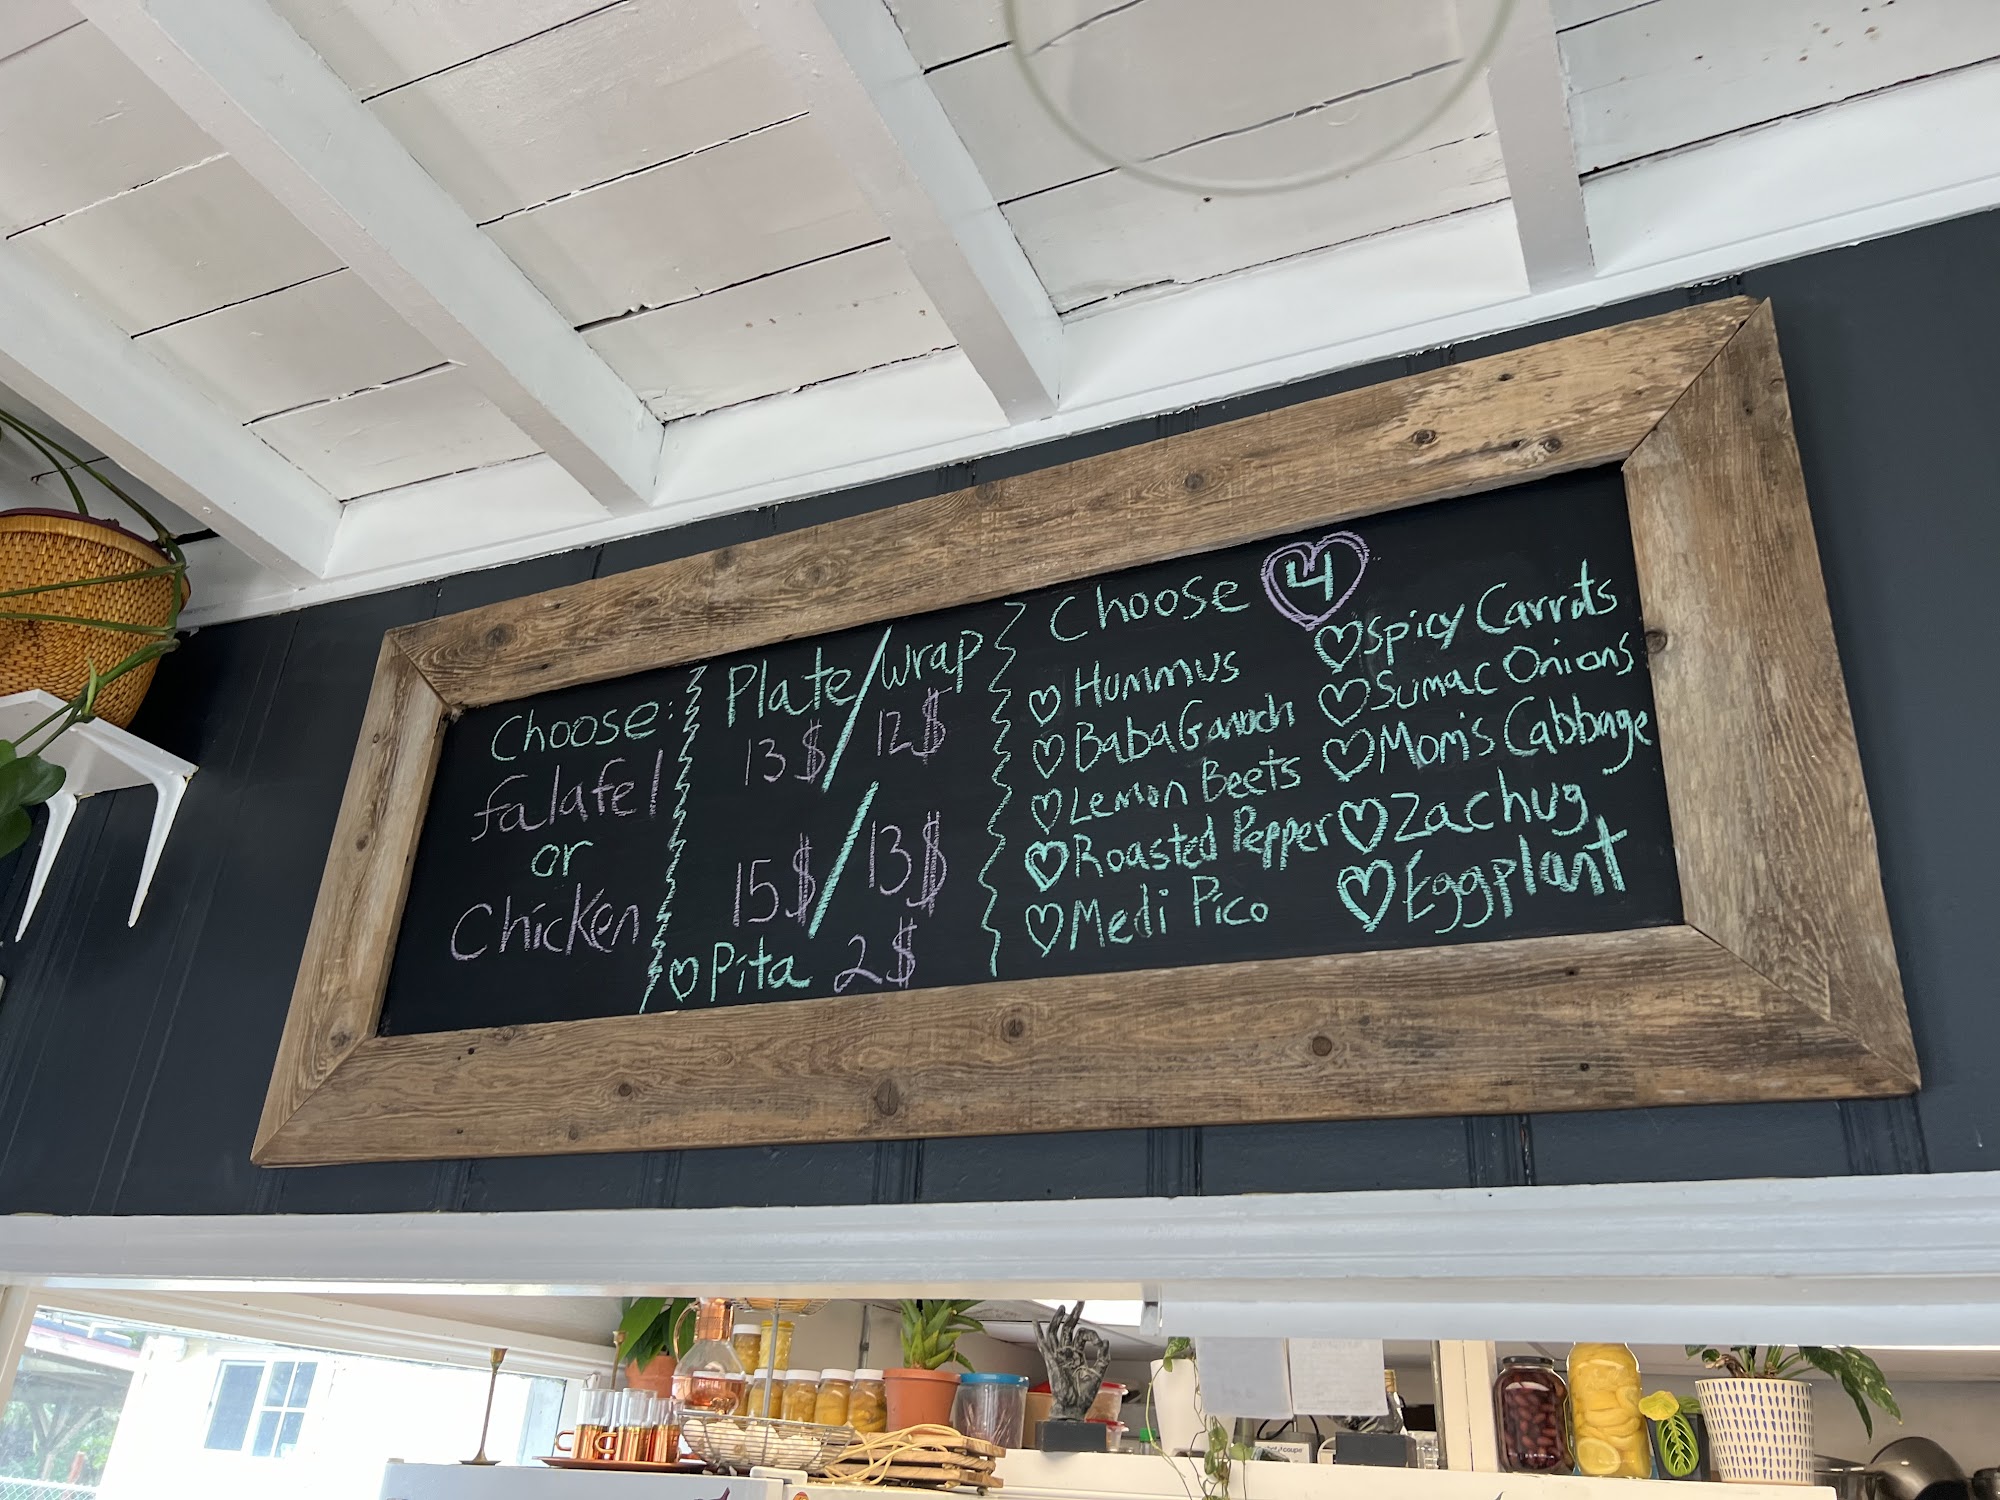 Choose:
falafel
or
Chicken
Plate/wrap
13$/12$
15$/13$
Pita 2$
Choose 4
Hummus
Baba Ganouch
Lemon Beets
Roasted Pepper
Medi Pico
Spicy Carrots
Sumac Onions
Mom's Cabbage
Zachug
Eggplant